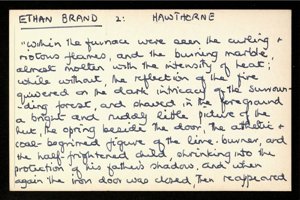 ETHAN BRAND 2: HAWTHORNE
"Within the furnace were seen the curling &
riotous flames, and the burning marble,
almost molten with the intensity of heat;
while without, the reflection of the fire
quivered on the dark intricacy of the surroun-
ding forest, and showed in the foreground
a bright and ruddy little picture of the
hut, the spring beside the door, the athletic &
coal-begrimed figure of the lime-burner, and
the half-frightened child, shrinking into the
protection of his father's shadow. And when
again the iron door was closed, then reappeared